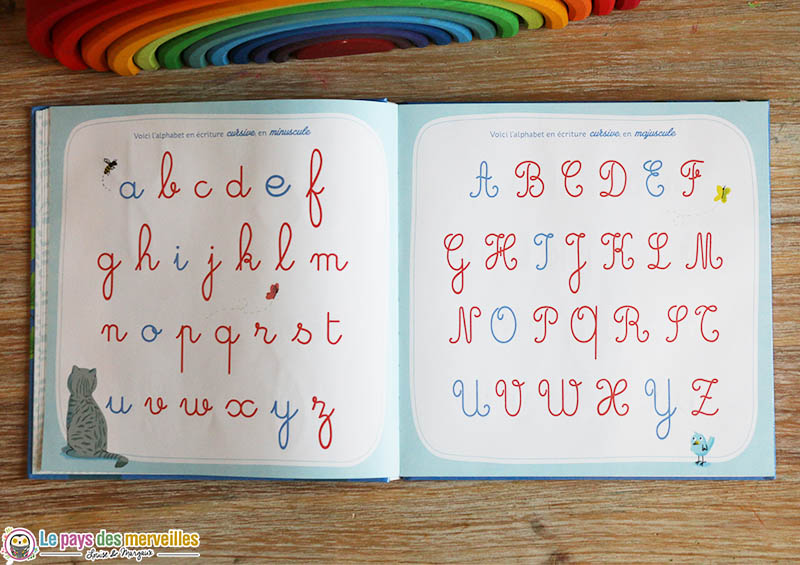 Voici l'alphabet en écriture cursive, en minuscule
a b c d e f
g h i j k l m
n o p q r s t
u v w x y z
Voici l'alphabet en écriture cursive, en majuscule
A B C D E F
G H I J K L M
N O P Q R S T
U V W X Y Z
Le pays des merveilles
Louise & Margaux